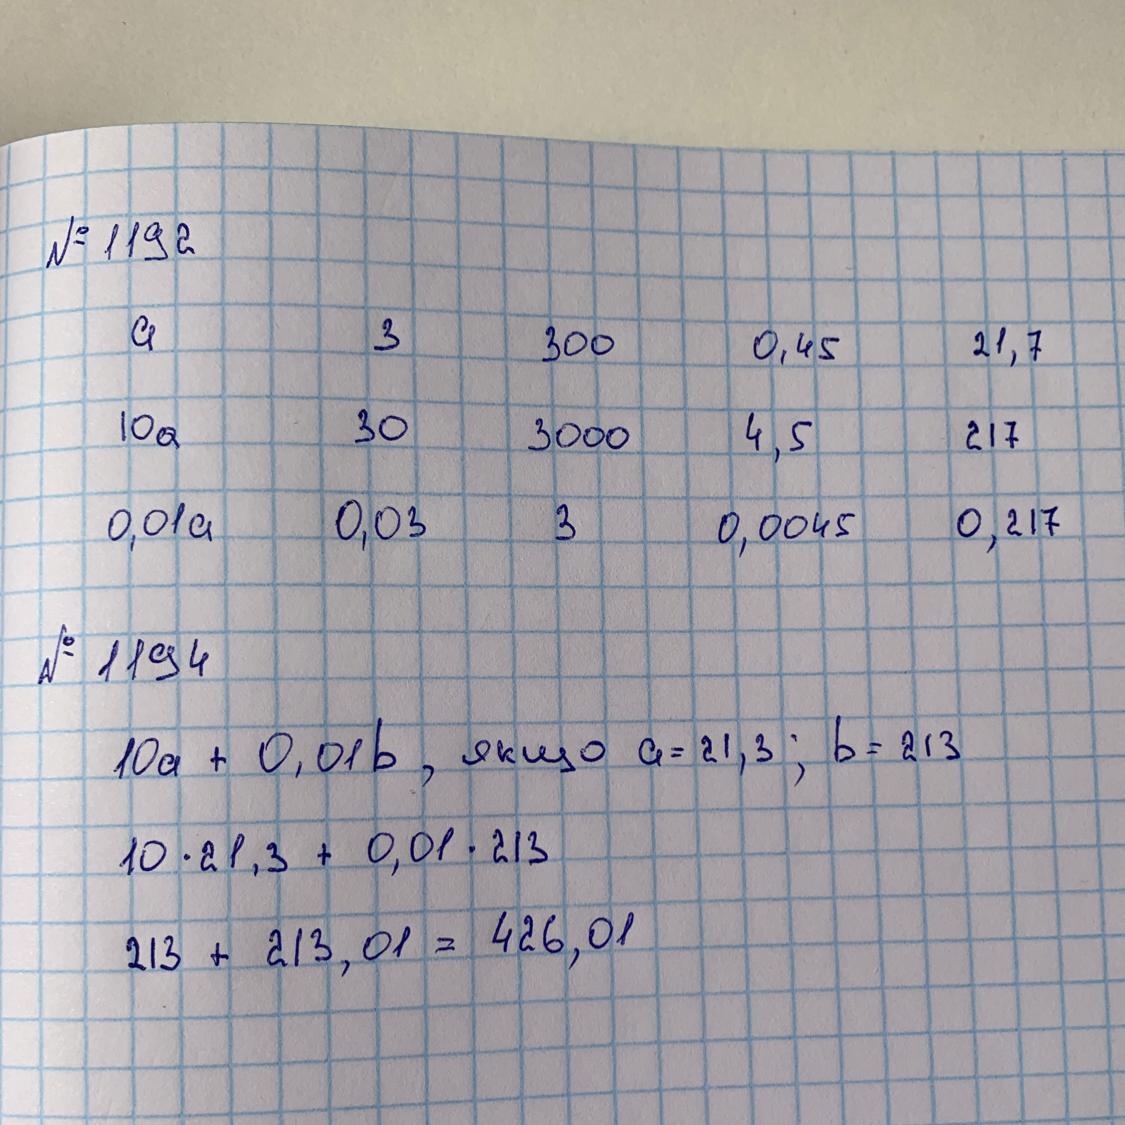 № 1192
a 3 300 0,45 21,7
10a 30 3000 4,5 217
0,01a 0,03 3 0,0045 0,217
№ 1194
10a + 0,01b, якщо a = 21,3; b = 213
10 · 21,3 + 0,01 · 213
213 + 213,01 = 426,01